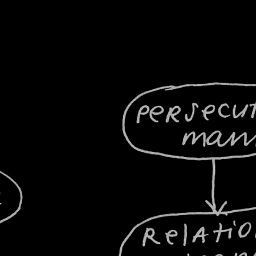 PERSECUT
man
RELATIO